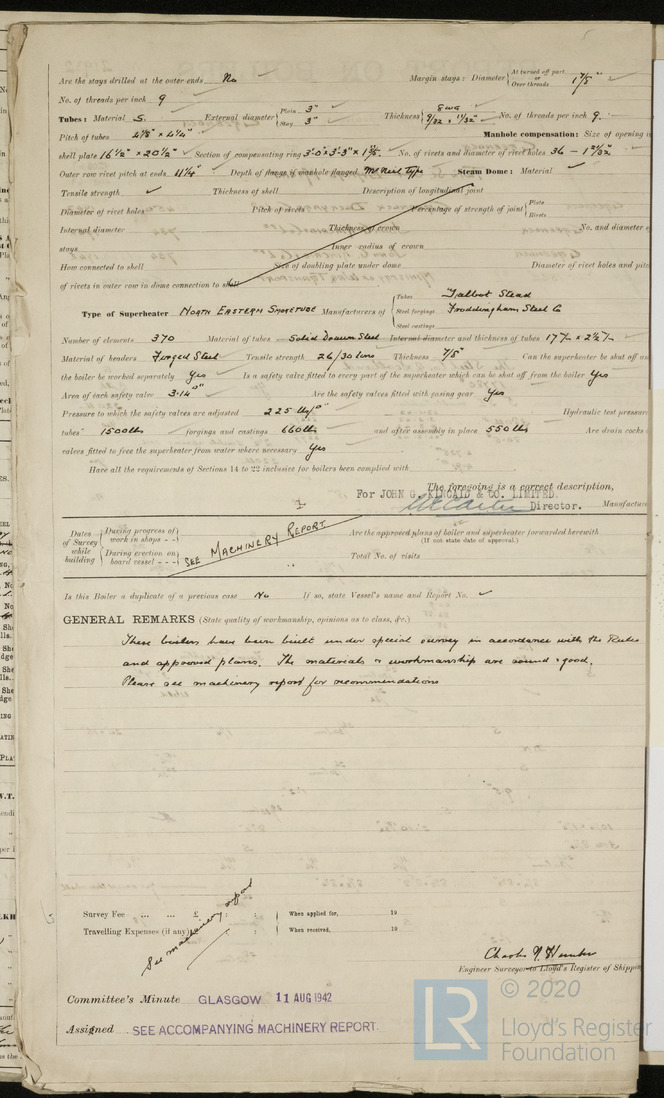 Are the stays drilled at the outer ends No Margin stays: Diameter { At turned off part, or Over threads 1 7/8"
No. of threads per inch 9
Tubes: Material S. External diameter { Plain 3" Stay 3" Thickness { 8 WG 9/32 & 11/32" No. of threads per inch 9.
Pitch of tubes 4 1/8" × 4 1/4" Manhole compensation: Size of opening in
shell plate 16 1/2" × 20 1/2" Section of compensating ring No. of rivets and diameter of rivet holes
Outer row rivet pitch at ends 11 1/4" Depth of flange if manhole flanged McNeil Type Steam Dome: Material
Tensile strength Thickness of shell Description of longitudinal joint
Diameter of rivet holes Pitch of rivets Percentage of strength of joint { Plate Rivets
Internal diameter Thickness of crown No. and diameter of
stays Inner radius of crown
How connected to shell Size of doubling plate under dome Diameter of rivet holes and pitch
of rivets in outer row in dome connection to shell
Type of Superheater North Eastern Smoketube Manufacturers of { Tubes Talbot Stead Steel forgings Frodingham Steel Co Steel castings
Number of elements 370 Material of tubes Solid Drawn Steel Internal diameter and thickness of tubes 17 7/m × 2 1/2 7/m
Material of headers Forged Steel Tensile strength 26/30 tons Thickness 7/8" Can the superheater be shut off an
the boiler be worked separately Yes Is a safety valve fitted to every part of the superheater which can be shut off from the boiler Yes
Area of each safety valve 3.14 □" Are the safety valves fitted with easing gear Yes
Pressure to which the safety valves are adjusted 225 lbs/□" Hydraulic test pressure
tubes 1500 lbs forgings and castings 660 lbs and after assembly in place 550 lbs Are drain cocks o
valves fitted to free the superheater from water where necessary Yes
Have all the requirements of Sections 14 to 22 inclusive for boilers been complied with
The foregoing is a correct description,
For JOHN G. KINCAID & CO. LIMITED.
Director. Manufactur
Dates of Survey while building { During progress of work in shops - - During erection on board vessel - - - SEE MACHINERY REPORT Are the approved plans of boiler and superheater forwarded herewith
(If not state date of approval.)
Total No. of visits
Is this Boiler a duplicate of a previous case No If so, state Vessel's name and Report No.
GENERAL REMARKS (State quality of workmanship, opinions as to class, &c.)
These boilers have been built under special survey in accordance with the Rules
and approved plans. The materials & workmanship are sound & good.
Please see machinery report for recommendations
Survey Fee ... ... £ : : When applied for, 19
Travelling Expenses (if any) £ : : When received, 19
See machinery report
Charles N. Hunter
Engineer Surveyor to Lloyd's Register of Shippin
Committee's Minute GLASGOW 11 AUG 1942
Assigned SEE ACCOMPANYING MACHINERY REPORT.
LR © 2020
Lloyd's Register
Foundation